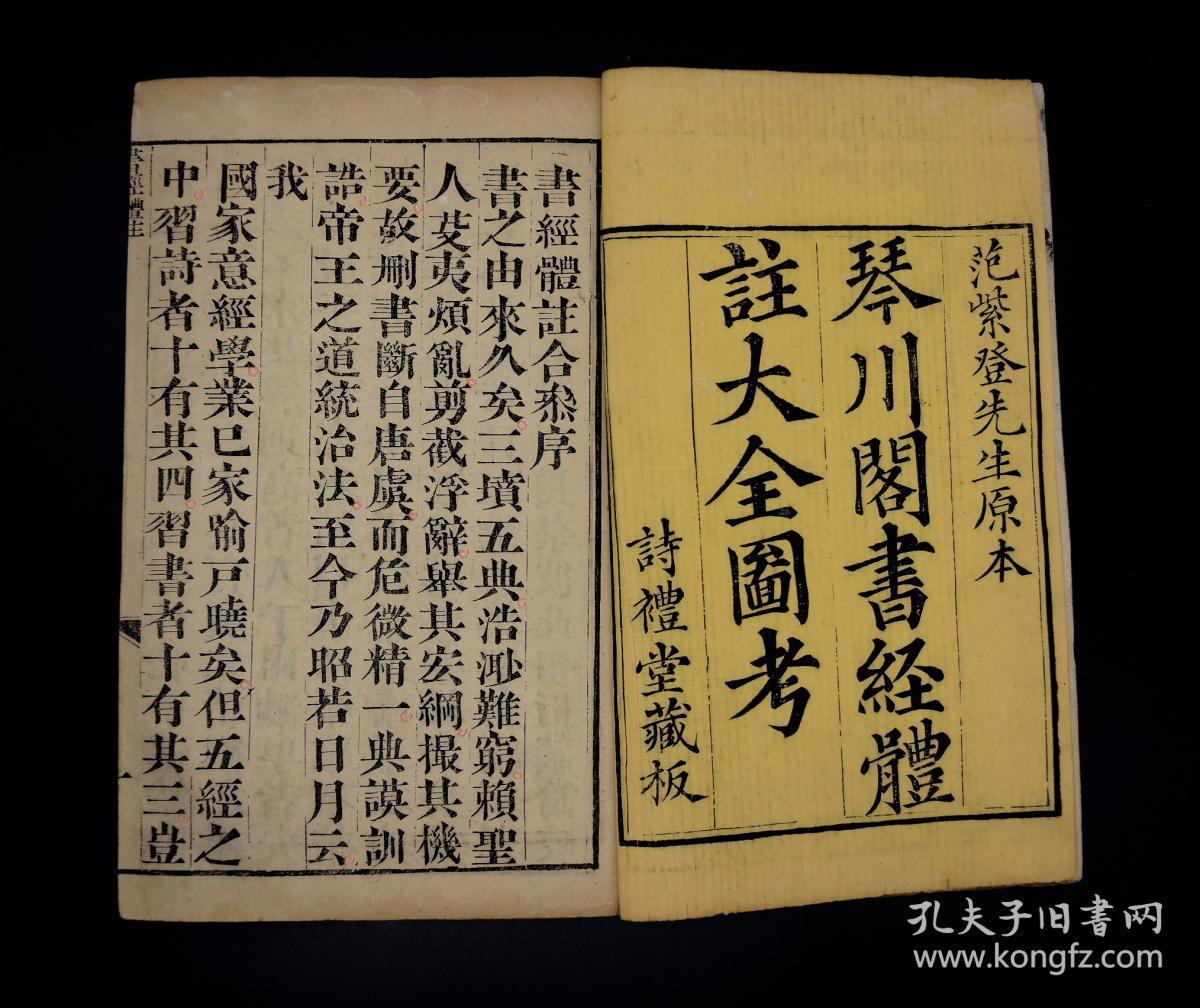 范紫登先生原本
琴川閣書経體
註大全圖考
詩禮堂藏板
書經體註合叅序
書之由來久矣三墳五典浩渺難窮賴聖
人芟夷煩亂剪截浮辭舉其宏綱撮其機
要故刪書斷自唐虞而危微精一典謨訓
誥帝王之道統治法至今乃昭若日月云
我
國家意經學業已家喻戸曉矣但五經之
中習詩者十有其四習書者十有其三豈
書經體註
孔夫子旧书网
www.kongfz.com